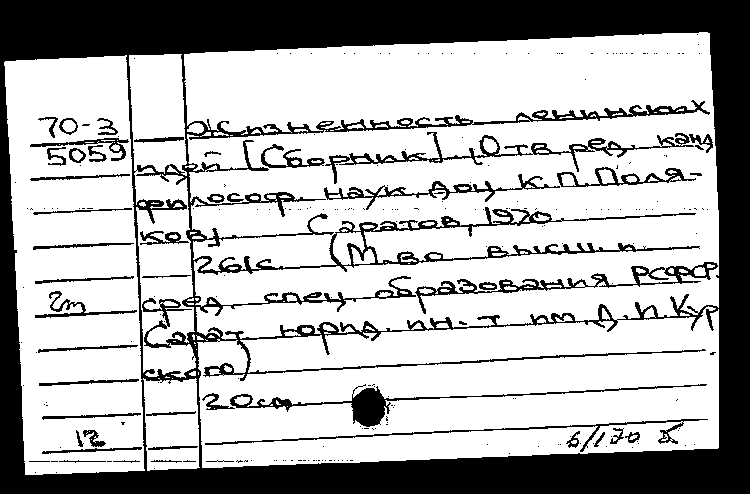 70-3 Жизненность ленинских
5059 идей [Сборник] [Отв. ред. канд
философ. наук, доц. К.П. Поля-
ков]. Саратов, 1970.
261с. (М-во высш. и
2т сред. спец. образования РСФСР.
Сарат. юрид. ин-т им. Д.И. Кур
ского)
20см.
12 6/170